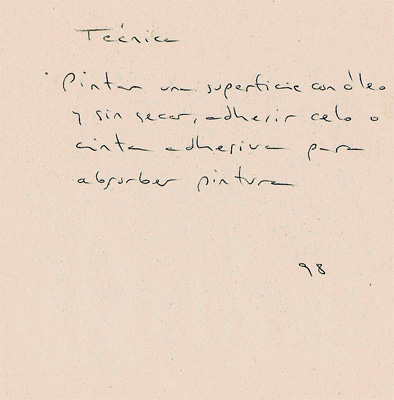 Técnica
· Pintar una superficie con óleo
y sin secar, adherir celo o
cinta adhesiva para
absorber pintura
98